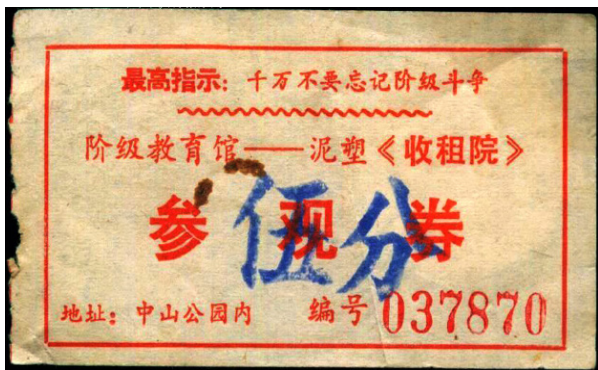 最高指示：千万不要忘记阶级斗争
阶级教育馆——泥塑《收租院》
参观券
伍分
地址：中山公园内 编号 037870